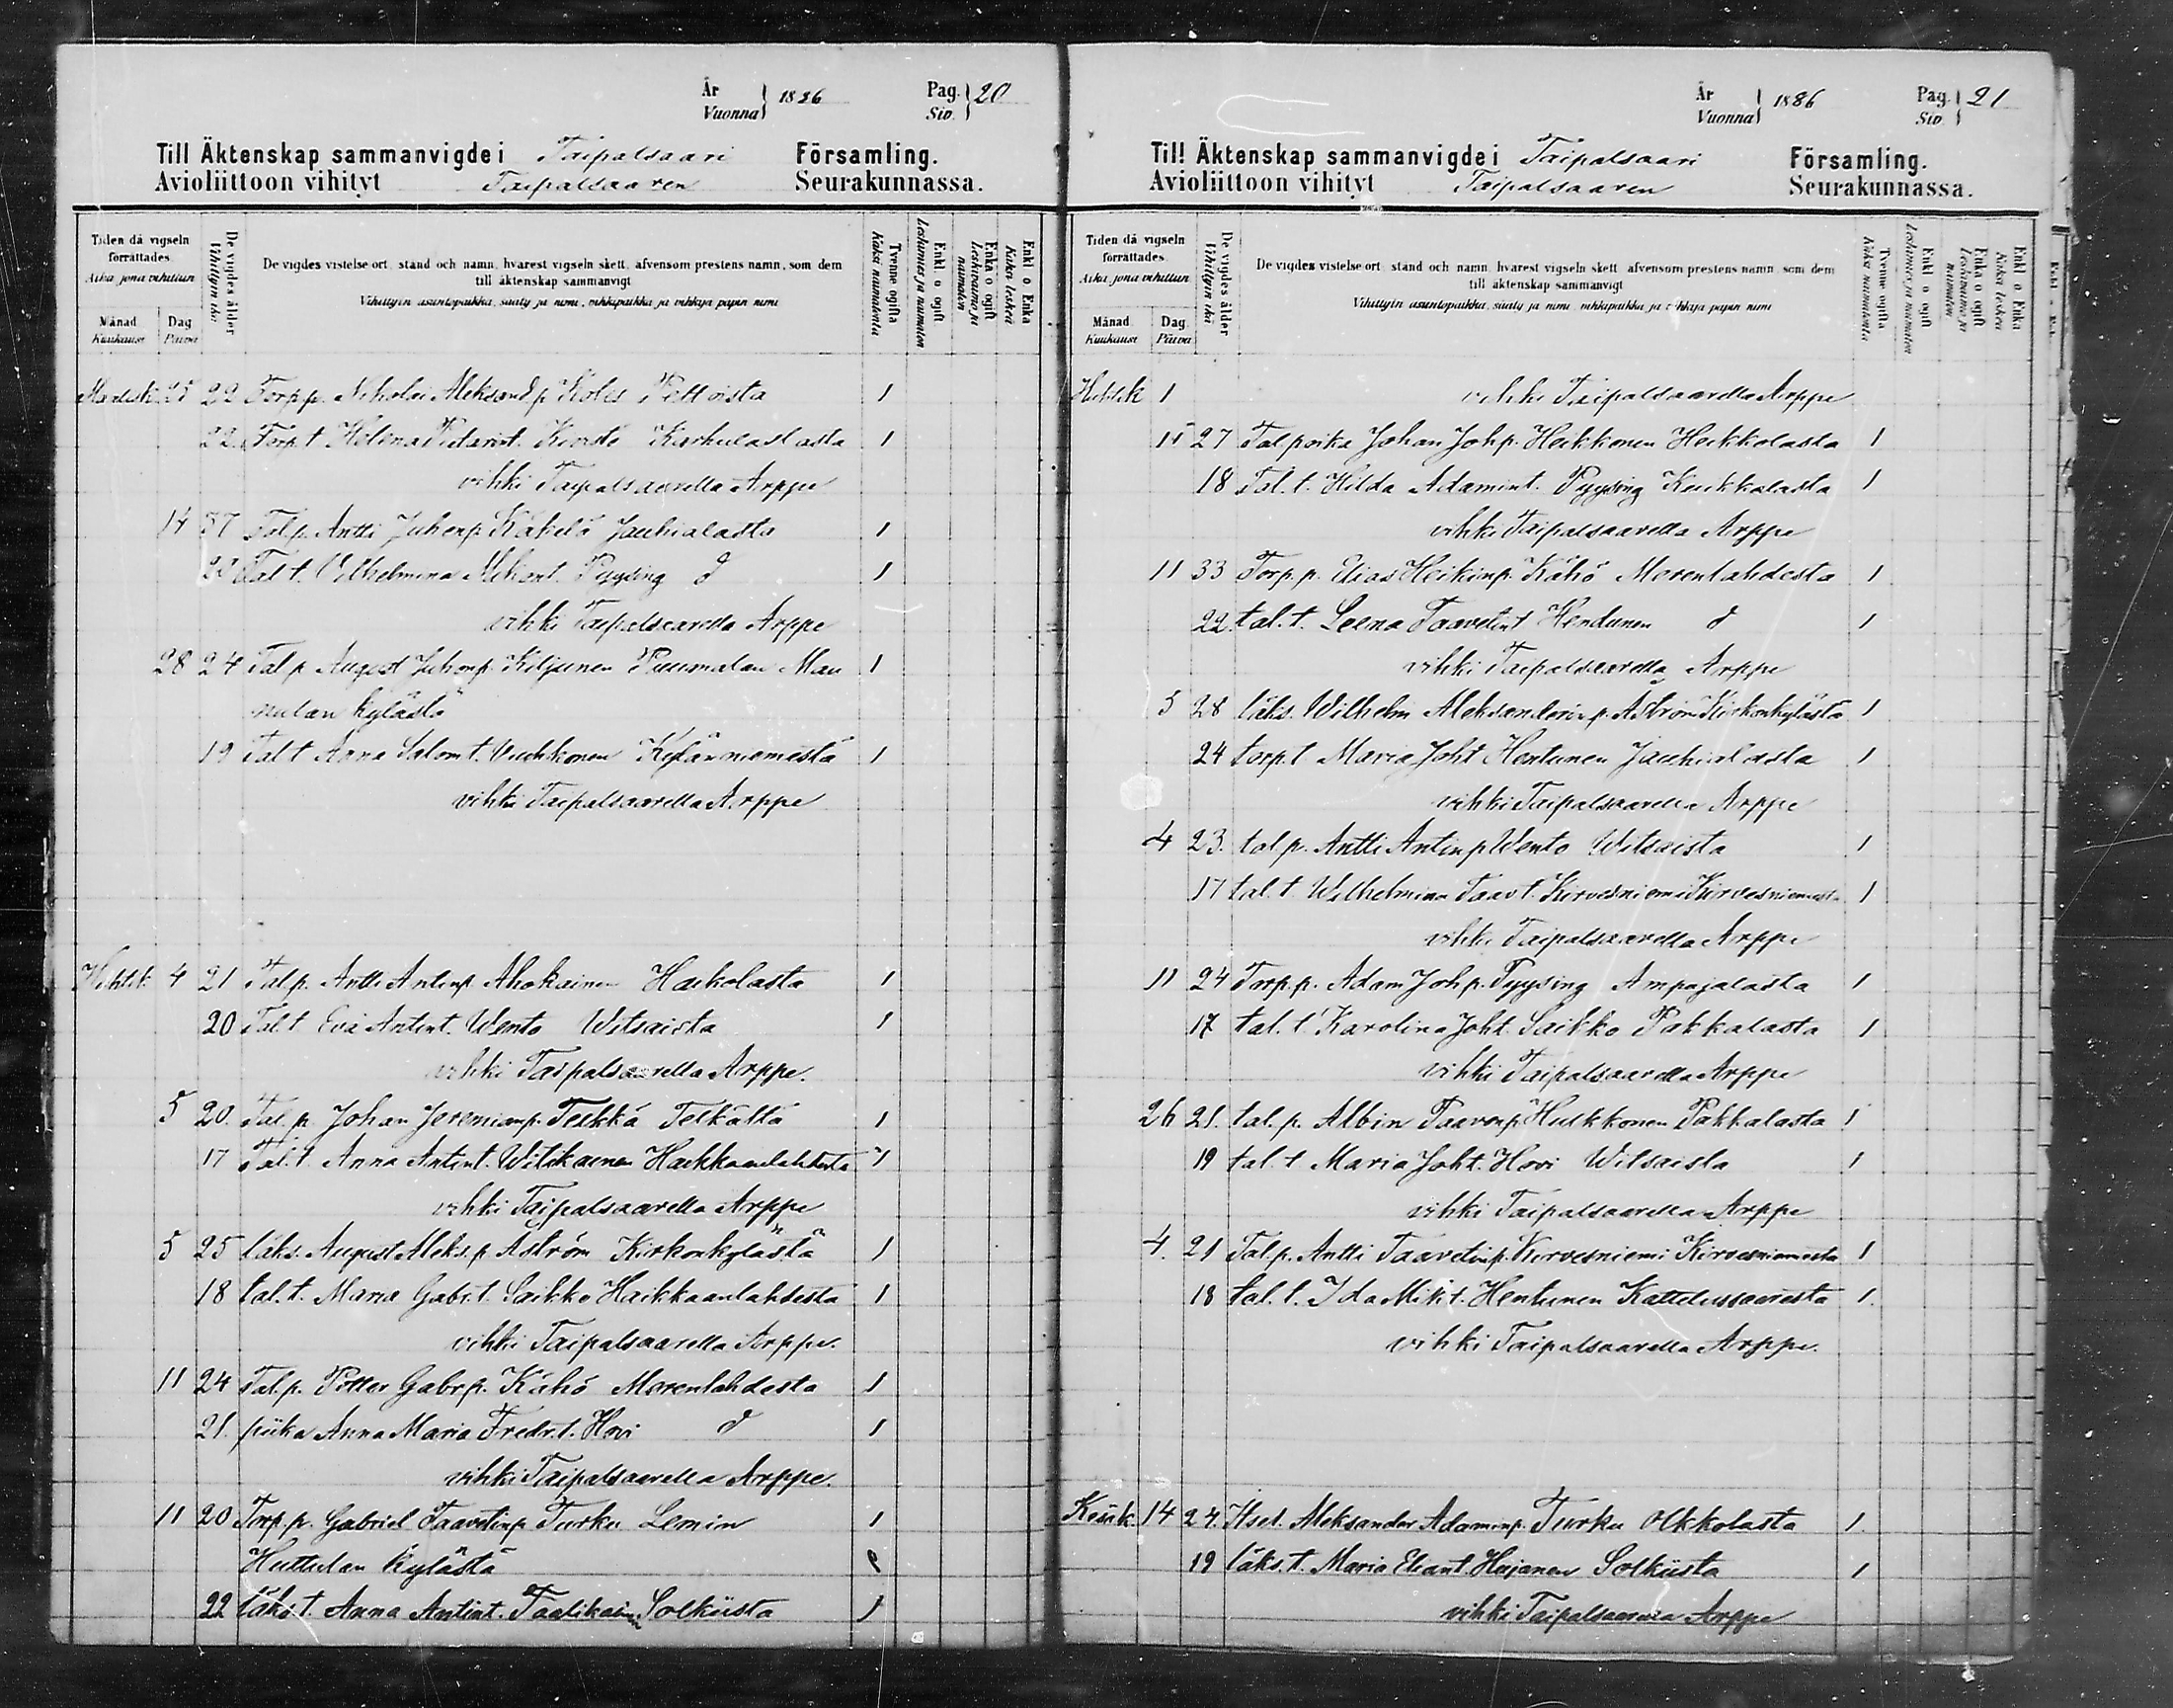 År
Vuonna } 1886
Pag.
Siv. } 20
Till Äktenskap sammanvigde i Taipalsaari Församling.
Avioliittoon vihityt Taipalsaaren Seurakunnassa.
Tiden då vigseln förrättades
Aika jona vihittiin
Månad Kuukausi
Dag Päivä
De vigdes ålder
Vihittyin ikä
De vigdes vistelseort, stånd och namn, hvarest vigseln skett, äfvensom prestens namn, som dem
till äktenskap sammanvigt
Vihittyin asuntopaikka, sääty ja nimi, vihkipaikka ja vihkijä papin nimi
Tvenne ogifta
Kaksi naimatonta
Enkl. o. ogift
Leskimies ja naimaton
Enka o. ogift
Leskivaimo ja naimaton
Enkl. o. Enka
Kaksi leskeä
Maalisk. 25 22 Torp.p. Nikolai Aleksand.p. Kolis 1
22. Torp.t. Helena 1
vihki Taipalsaarella Arppe
14 37 Tal.p. Antti Juhonp. Käkelä Jauhialasta 1
22 Tal.t. Vilhelmina Mikont. Pyysing d 1
vihki Taipalsaarella Arppe
28 24 Tal.p. August Juhonp. Kiljunen Puumalan Man 1
nulan kylästä
19 Tal.t. Anna Salom.t. Kylänniemestä 1
vihki Taipalsaarella Arppe
Huhtik. 4 21 Tal.p. Antti Antinp. Ahokainen Haikolasta 1
20 Tal.t. Eva Antint. Wento Witsaista 1
vihki Taipalsaarella Arppe.
5 20. Tal.p. Johan Jeremianp. Telkkä Telkältä 1
17 Tal.t. Anna Antint. Witikainen Haikkaanlahdesta 1
vihki Taipalsaarella Arppe
5 25 läks. August Aleks.p. Åström Kirkonkylästä 1
18 tal.t. Maria Gabr.t. Saikko Haikkaanlahdesta 1
vihki Taipalsaarella Arppe.
11 24 Tal.p. Petter Gabr.p. Kähö Merenlahdesta 1
21. piika Anna Maria Fredr.t. Hovi d 1
vihki Taipalsaarella Arppe.
11 20 Torp.p. Gabriel Taavetinp. Turku Lemin 1
Huttulan kylästä
22 läks.t. Anna Antint. Taalikainen Solkiista 1
År
Vuonna } 1886
Pag.
Siv. } 21
Till Äktenskap sammanvigde i Taipalsaari Församling.
Avioliittoon vihityt Taipalsaaren Seurakunnassa.
Tiden då vigseln förrättades
Aika jona vihittiin
Månad Kuukausi
Dag Päivä
De vigdes ålder
Vihittyin ikä
De vigdes vistelseort, stånd och namn, hvarest vigseln skett, äfvensom prestens namn, som dem
till äktenskap sammanvigt
Vihittyin asuntopaikka, sääty ja nimi, vihkipaikka ja vihkijä papin nimi
Tvenne ogifta
Kaksi naimatonta
Enkl. o. ogift
Leskimies ja naimaton
Enka o. ogift
Leskivaimo ja naimaton
Enkl. o. Enka
Kaksi leskeä
Huhtik. 1 vihki Taipalsaarella Arppe
27 Tal.poika Johan Joh.p. Heikkonen Heikkolasta 1
18 Tal.t. Hilda Adamint. Pyysing Kuikkalasta 1
vihki Taipalsaarella Arppe
11 33 Torp.p. Elias Heikinp. Kähö Merenlahdesta 1
22. tal.t. Leena Taavetint. Hendunen d 1
vihki Taipalsaarella Arppe
5 28 läks. Wilhelm Aleksanderinp. Åström Kirkonkylästä 1
24 torp.t. Maria Joh.t. Hentunen Jauhialasta 1
vihki Taipalsaarella Arppe
4 23. tal.p. Antti Antinp. Wento Witsaista 1
17 tal.t. Wilhelmina Taav.t. Kirvesniemi Kirvesniemestä 1
vihki Taipalsaarella Arppe
11 24 Torp.p. Adam Joh.p. Pyysing Ampujalasta 1
17 tal.t. Karolina Joh.t. Saikko Pakkalasta 1
vihki Taipalsaarella Arppe
26 21. tal.p. Albin Taavinp. Hulkkonen Pakkalasta 1
19 tal.t. Maria Joh.t. Hovi Witsaista 1
vihki Taipalsaarella Arppe
4. 21 Tal.p. Antti Taavetinp. Kirvesniemi Kirvesniemestä 1
18 tal.t. Ida Mik.t. Hentunen Kattelussaaresta 1.
vihki Taipalsaarella Arppe.
Kesäk. 14 24. Itsel. Aleksander Adaminp. Turku Olkkolasta 1.
19 läks.t. Maria Eliant. Hujanen Solkiista 1
vihki Taipalsaarella Arppe